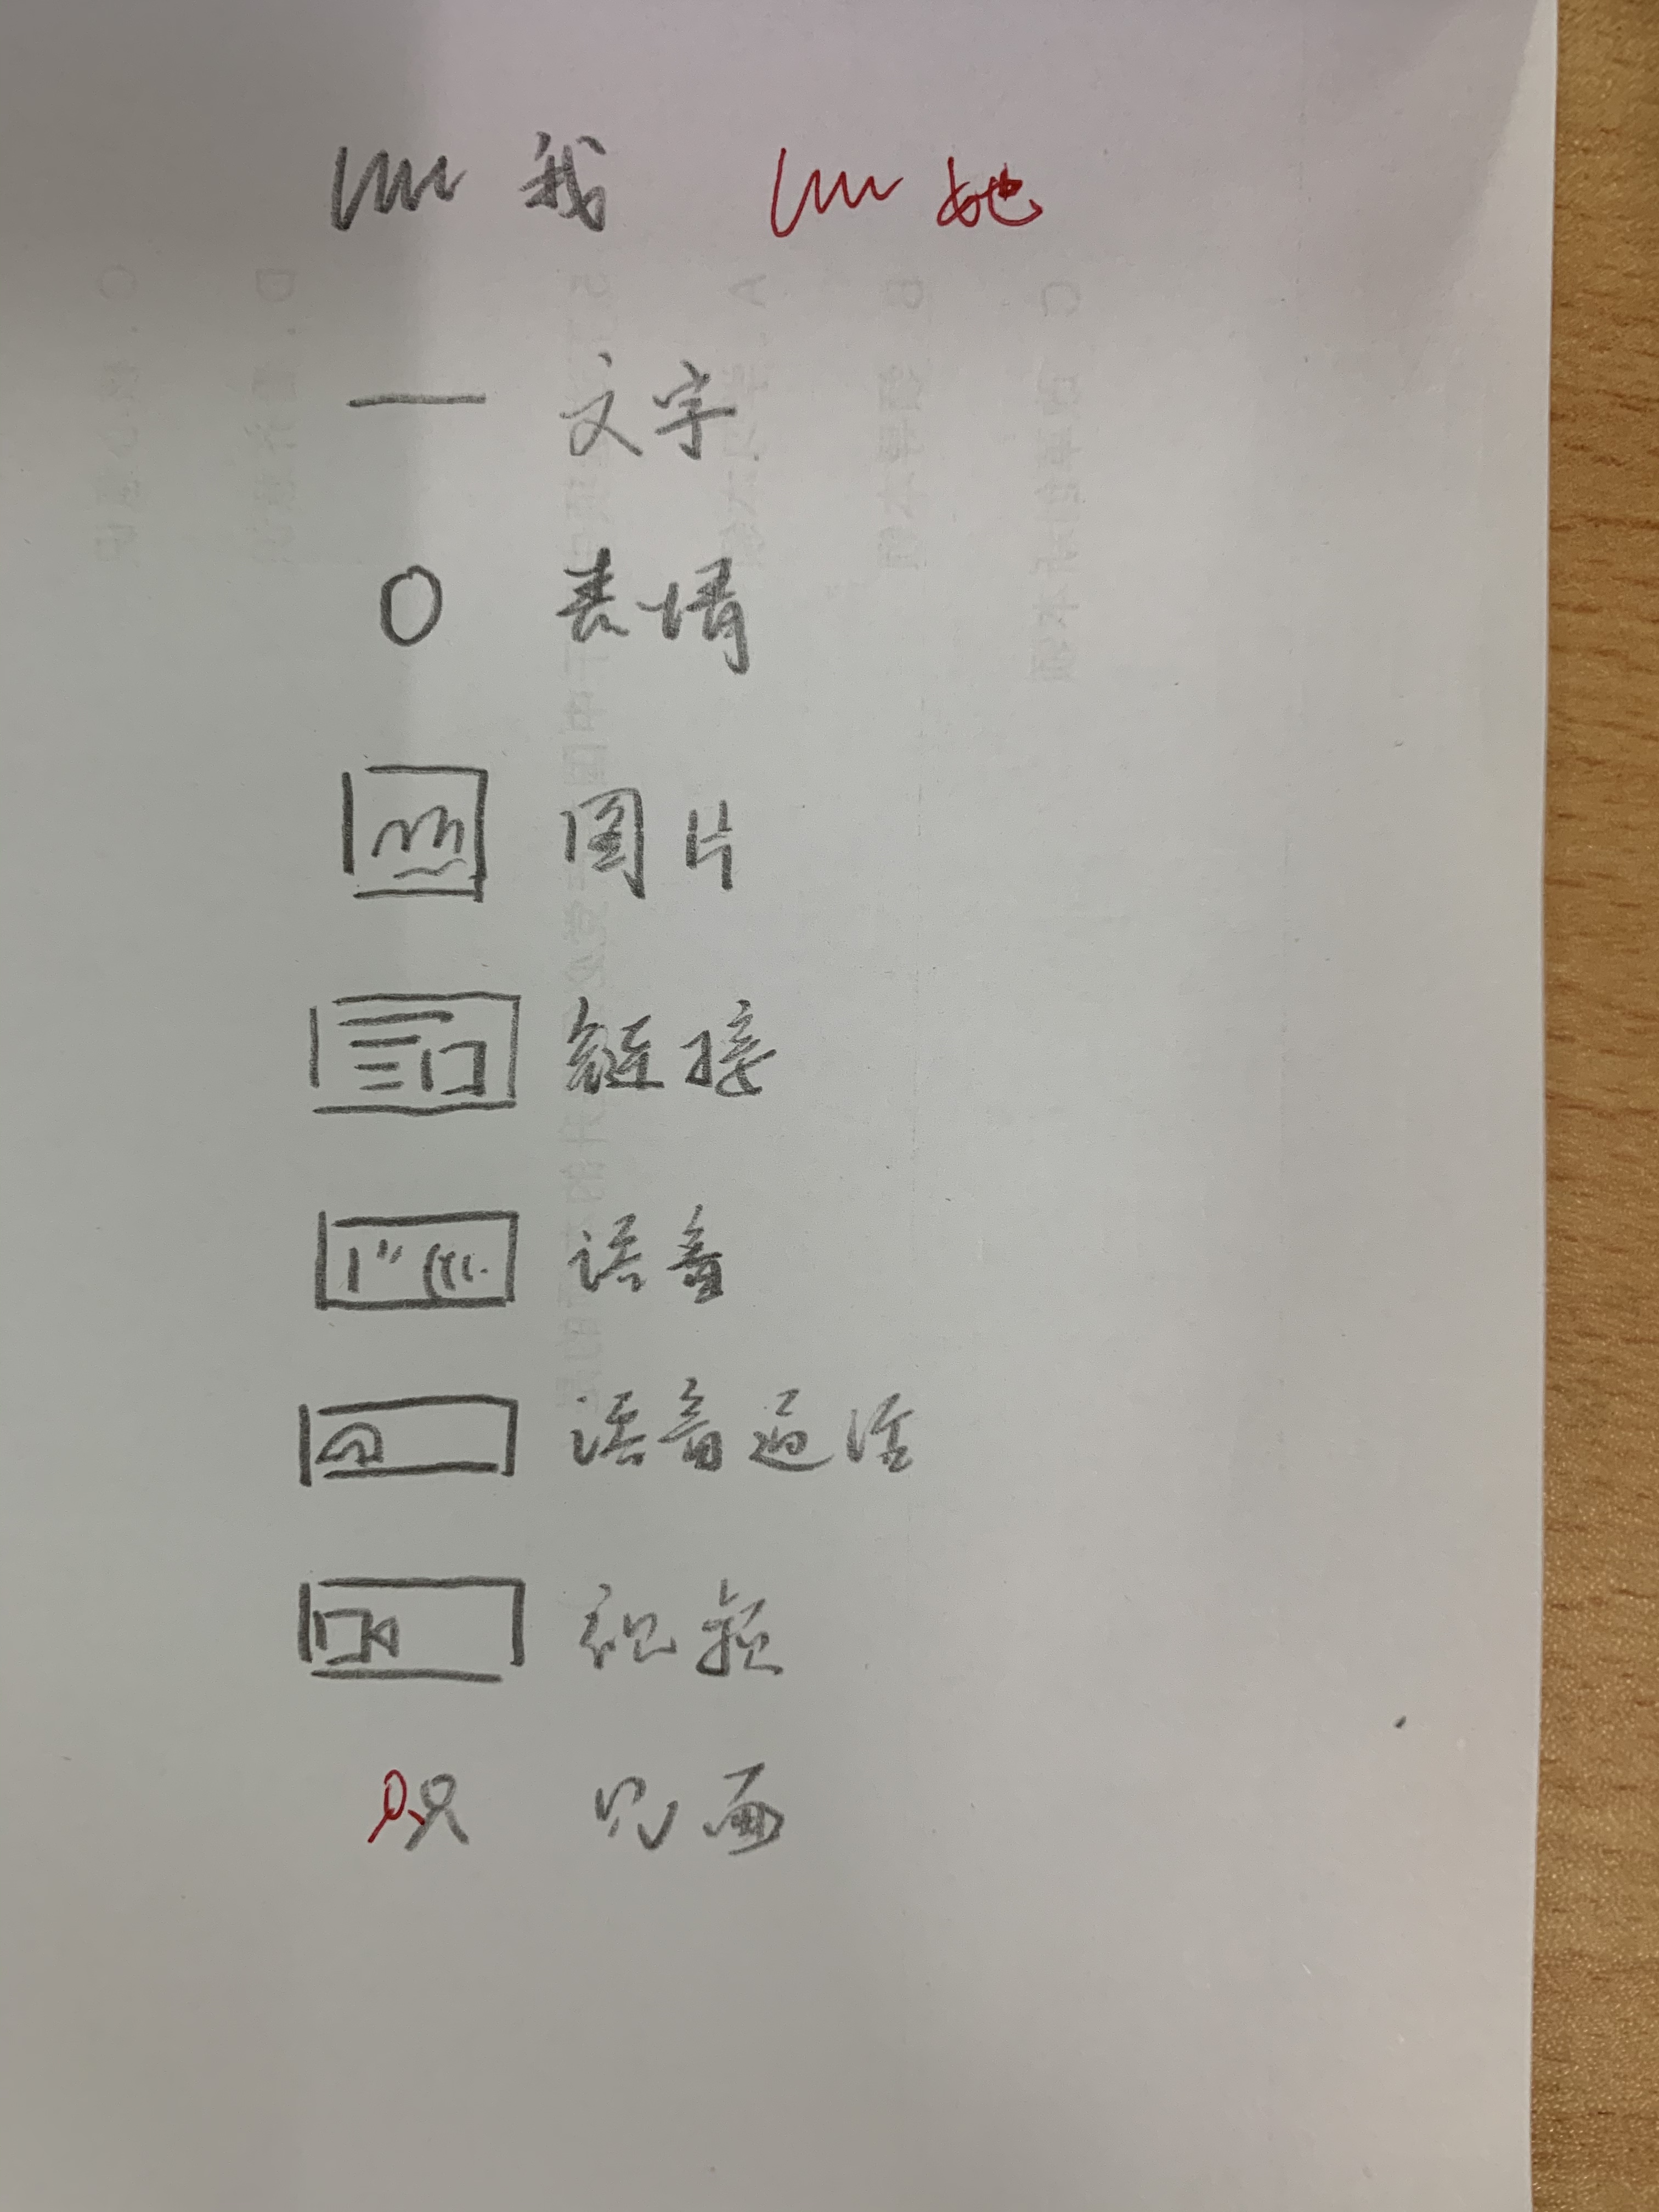 我 她
文字
表情
图片
链接
语音
语音通话
视频
见面